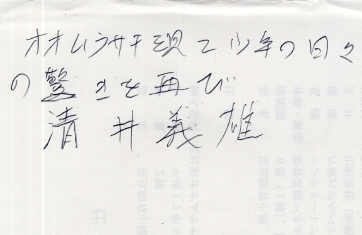 オオムラサキ現て少年の日々
の驚きを再び
清井義雄